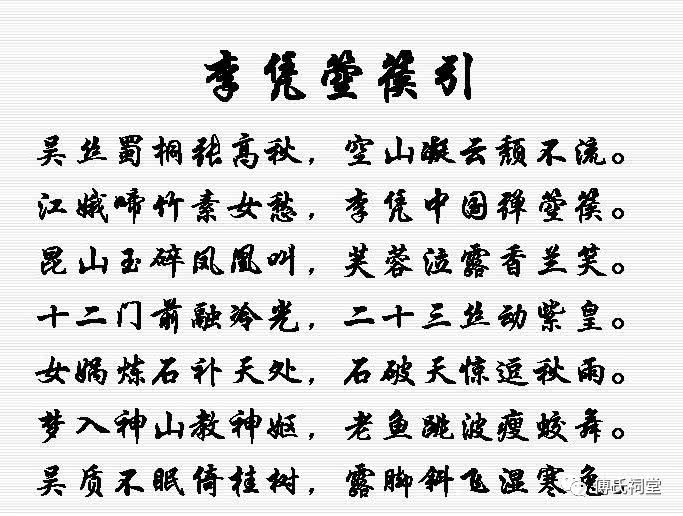 李凭箜篌引
吴丝蜀桐张高秋，空山凝云颓不流。
江娥啼竹素女愁，李凭中国弹箜篌。
昆山玉碎凤凰叫，芙蓉泣露香兰笑。
十二门前融冷光，二十三丝动紫皇。
女娲炼石补天处，石破天惊逗秋雨。
梦入神山教神妪，老鱼跳波瘦蛟舞。
吴质不眠倚桂树，露脚斜飞湿寒兔
傅氏祠堂